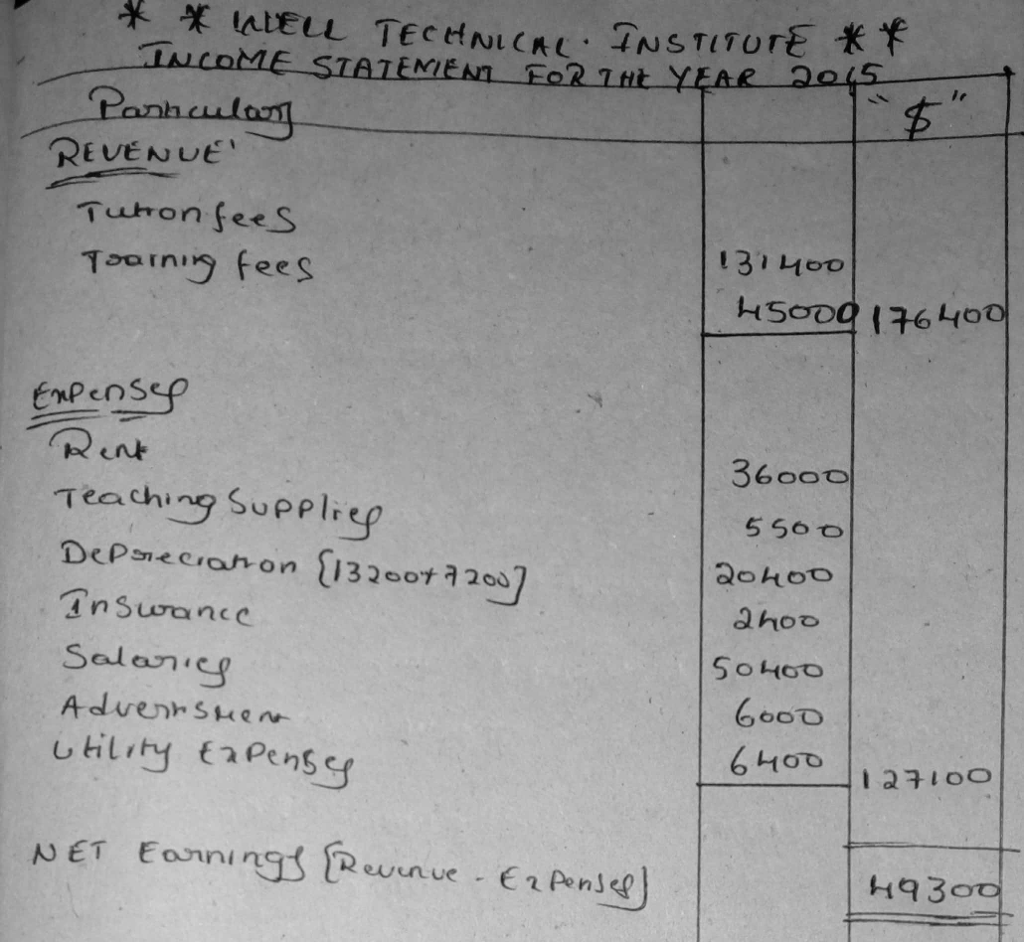 * * WELL TECHNICAL. INSTITUTE * *
INCOME STATEMENT FOR THE YEAR 2015
Particulars "$"
REVENUE'
Tution fees
Training fees 131400
45000 176400
Expenses
Rent
36000
Teaching Supplies
5500
Depreciation [13200+7200] 20400
Insurance 2400
Salaries 50400
Advertisment 6000
Utility Expenses 6400 127100
NET Earnings [Revenue - Expenses] 49300